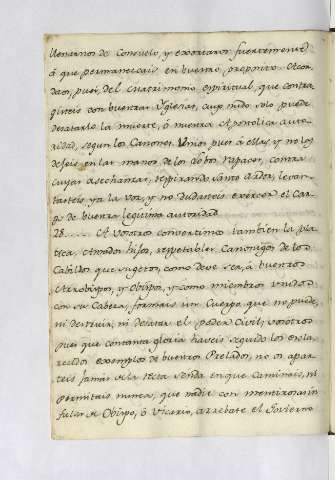 llenarnos de consuelo, y exortaros fuertemente
á que permanescais en buestro proposito. Acor-
daos, pues, del Matrimonio espiritual, que contra
gisteis con buestras Yglesias, cuyo nudo solo puede
desatarlo la muerte, ó nuestra Apostolica auto-
ridad, segun los Canones. Uníos pues a ellas, y no las
dejeis en las manos de los lobos rapaces, contra
cuyas asechanzas, respirando santo ardor, levan-
tasteis ya la voz, y no dudasteis exercer el car-
go de buestra legitima autoridad.
28. A vosotros convertimos tambien la pla-
tica, Amados hijos, respetables Canonigos de los
Cabildos que sugetos, como deve ser, á buestros
Arzobispos, y Obispos, y como miembros unidos
con su Cabeza, formais un Cuerpo que no puede
ni destruir, ni desatar el poder Civil; vosotros
pues que con tanta gloria haveis seguido los escla-
recidos exemplos de buestros Prelados, no os apar-
teis jamas de la recta senda en que caminais, ni
permitais nunca, que nadie con mentirosas in-
fulas de Obispo, ó Vicario, arrebate el Govierno